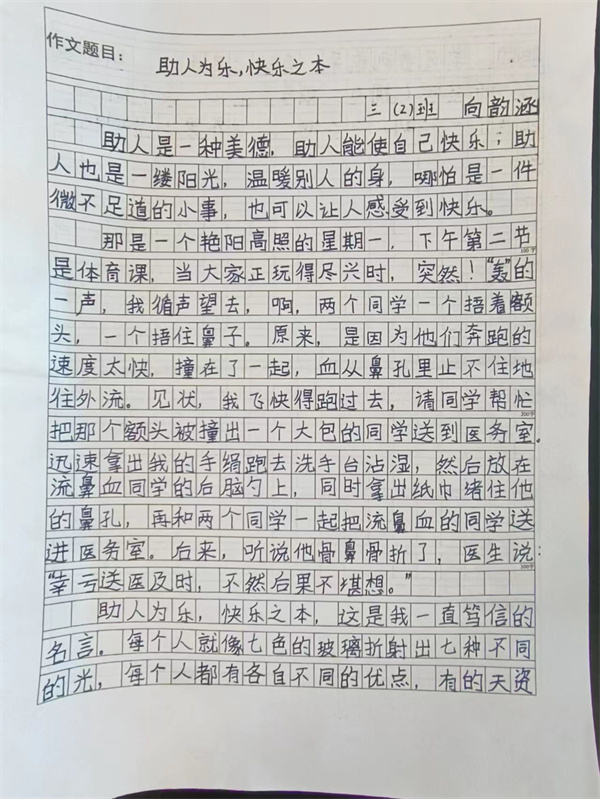 作文题目：
助人为乐,快乐之本
三(2)班 向韵涵
助人是一种美德，助人能使自己快乐；助
人也是一缕阳光，温暖别人的身，哪怕是一件
微不足道的小事，也可以让人感受到快乐。
那是一个艳阳高照的星期一，下午第二节
100字
是体育课，当大家正玩得尽兴时，突然！“轰”的
一声，我循声望去，啊，两个同学一个捂着额
头，一个捂住鼻子。原来，是因为他们奔跑的
速度太快，撞在了一起，血从鼻孔里止不住地
往外流。见状，我飞快得跑过去，请同学帮忙
200字
把那个额头被撞出一个大包的同学送到医务室。
迅速拿出我的手绢跑去洗手台沾湿，然后放在
流鼻血同学的后脑勺上，同时拿出纸巾绪住他
的鼻孔，再和两个同学一起把流鼻血的同学送
进医务室。后来，听说他骨鼻骨折了，医生说：
300字
“幸亏送医及时，不然后果不堪想。”
助人为乐，快乐之本，这是我一直笃信的
名言。每个人就像七色的玻璃折射出七种不同
的光，每个人都有各自不同的优点，有的天资